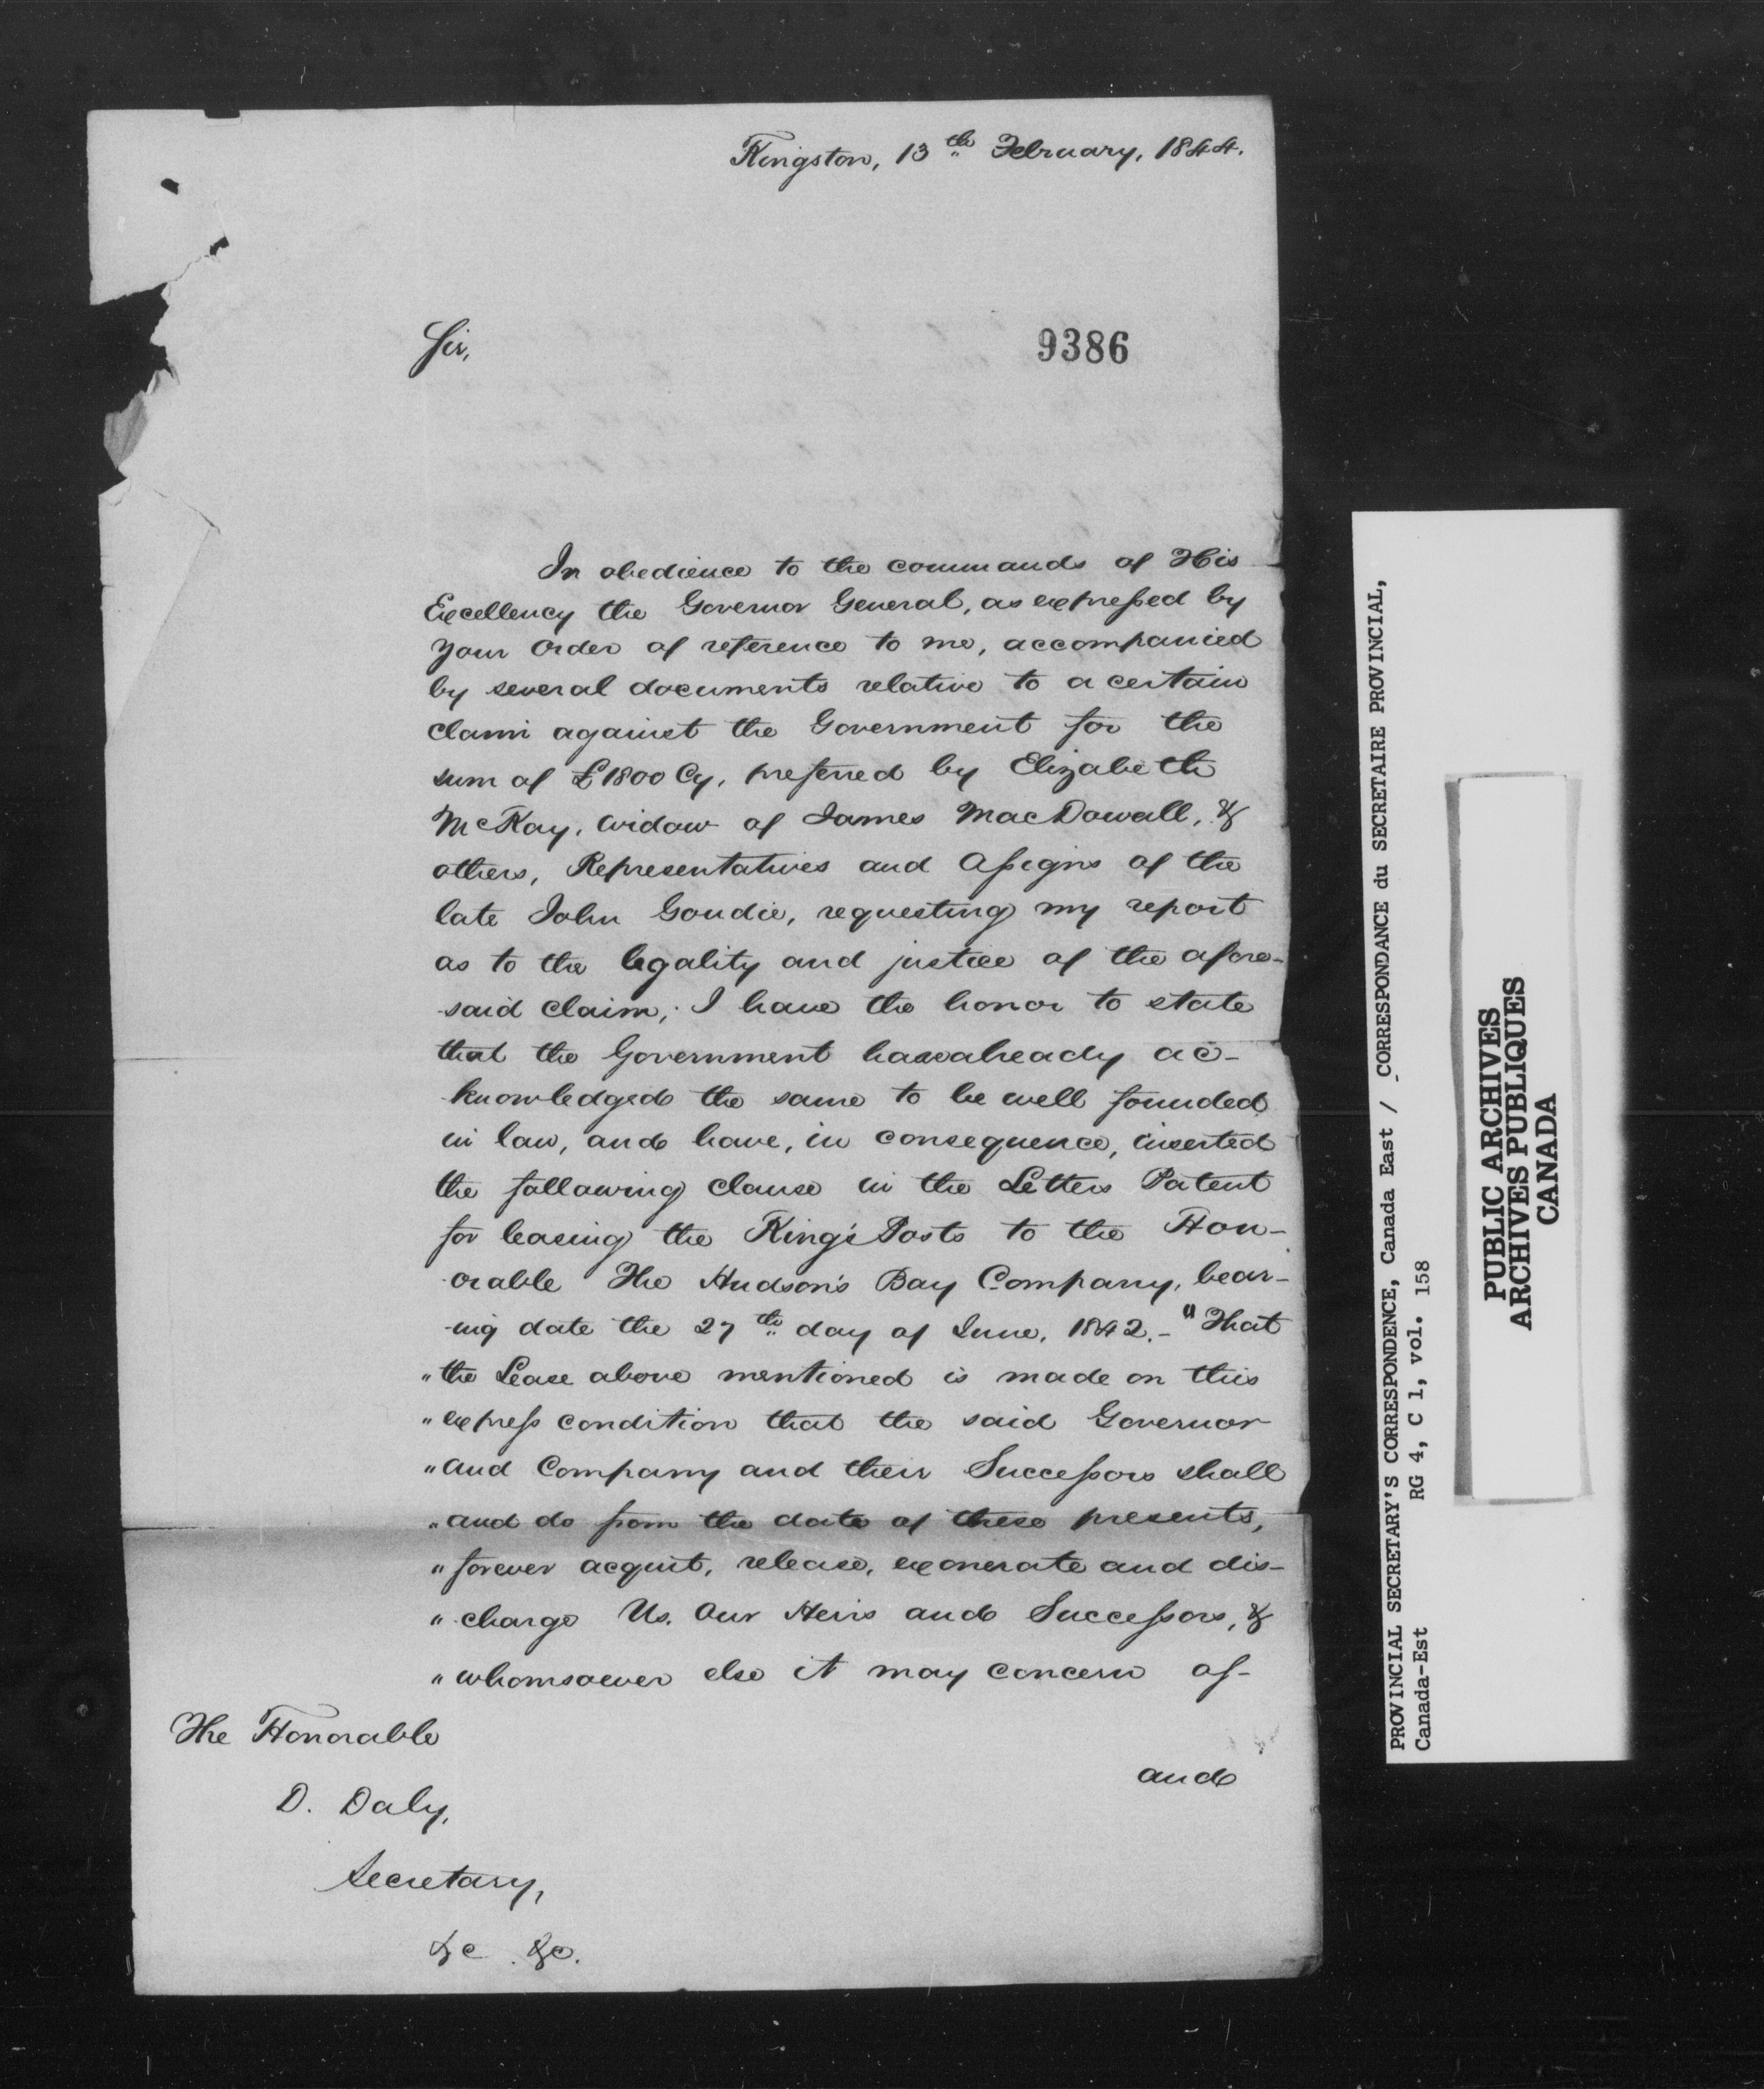 Kingston, 13th February, 1844.
Sir,
9386
In obedience to the commands of His
Excellency the Governor General, as expressed by
your Order of reference to me, accompanied
by several documents relative to a certain
claim against the Government for the
sum of £1800 Cy, preferred by Elizabeth
McKay, widow of James MacDowall, &
others, Representatives and Assigns of the
late John Goudie, requesting my report
as to the legality and justice of the afore-
said claim; I have the honor to state
that the Government have already ac-
knowledged the same to be well founded
in law, and have, in consequence, inserted
the following clause in the Letters Patent
for leasing the King's Posts to the Hon-
orable The Hudson's Bay Company, bear-
-ing date the 27th day of June, 1842.- "That
"the Lease above mentioned is made on this
"express condition that the said Governor
"and Company and their Successors shall
"and do from the date of these presents,
"forever acquit, release, exonerate and dis-
"charge Us. Our Heirs and Successors, &
"whomsoever else it may concern of-
and
The Honorable
D. Daly,
Secretary,
&c. &c.
PROVINCIAL SECRETARY'S CORRESPONDENCE, Canada East / CORRESPONDANCE du SECRETAIRE PROVINCIAL,
Canada-Est RG 4, C 1, vol. 158
PUBLIC ARCHIVES
ARCHIVES PUBLIQUES
CANADA